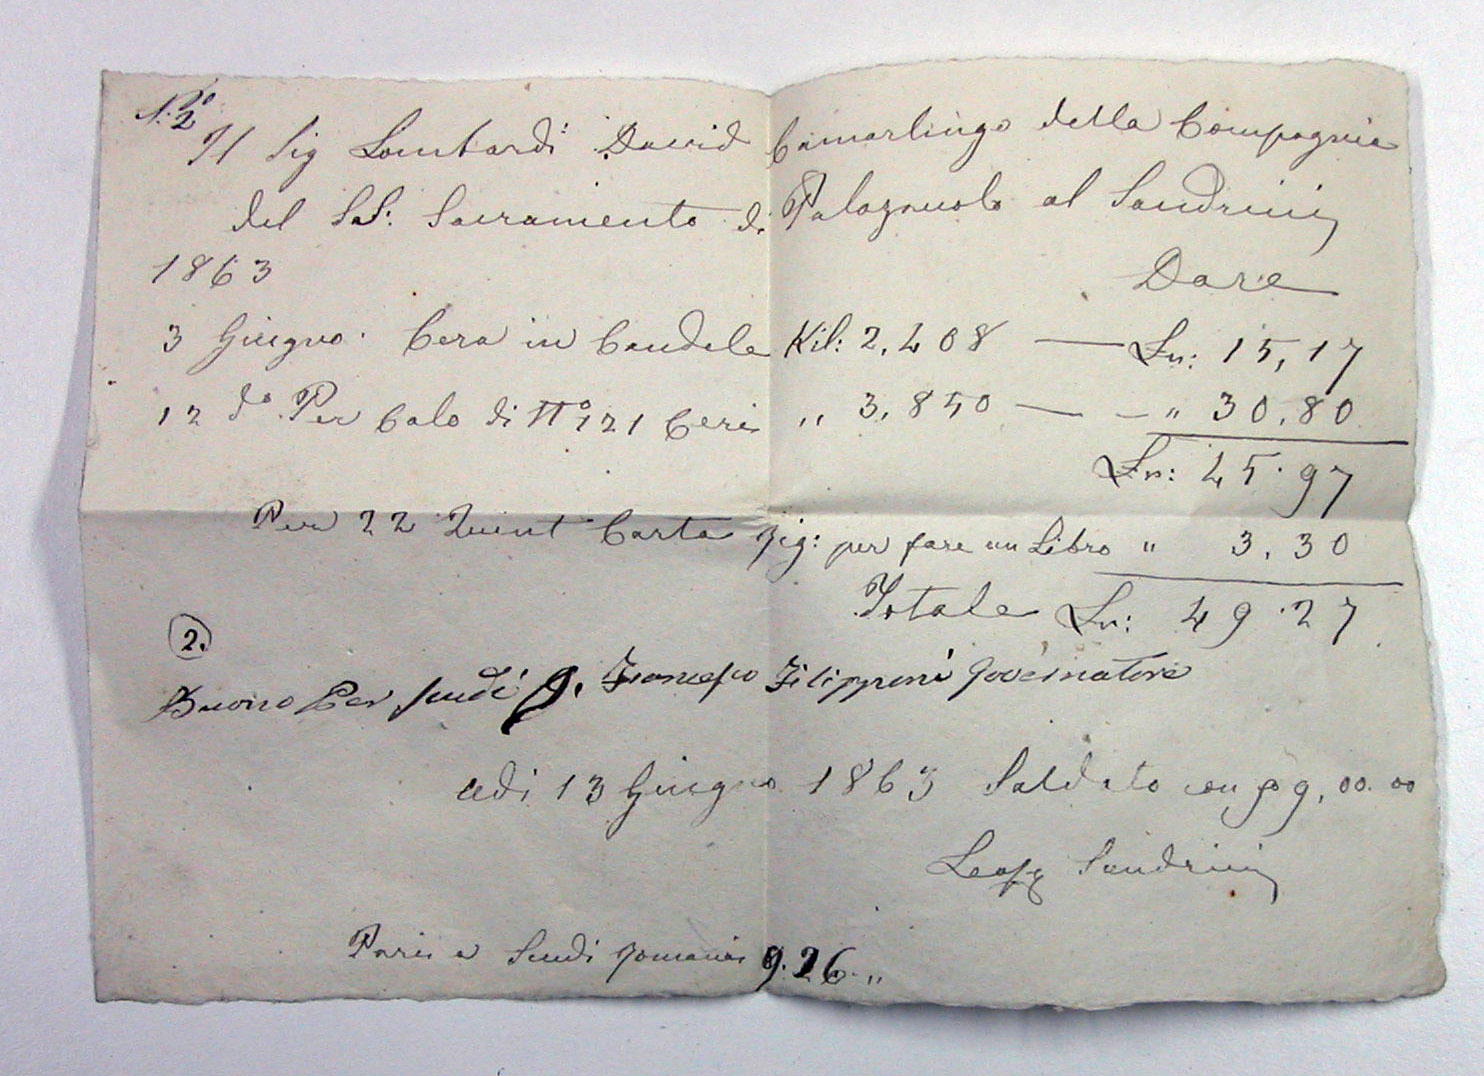 N.º 2
Il Sig Lombardi David Camarlingo della Compagnia
del SS: Sacramento di Palagnuolo al Sandrini
1863 Dare
3 Giugno. Cera in Candele Kil: 2,408 — Ln: 15,17
12 do. Per Calo di Nº 121 Ceri „ 3,850 — — „ 30.80
Ln: 45.97
Per 22 Quint Carta Rig: per fare un Libro „ 3.30
Totale Ln: 49.27
2.
Buono Per scudi 9. Francesco Filipponi Governatore
adi 13 Giugno 1863 Saldato con 9,00.00
Leop Sandrini
Pari a Scudi romani 9.26.„